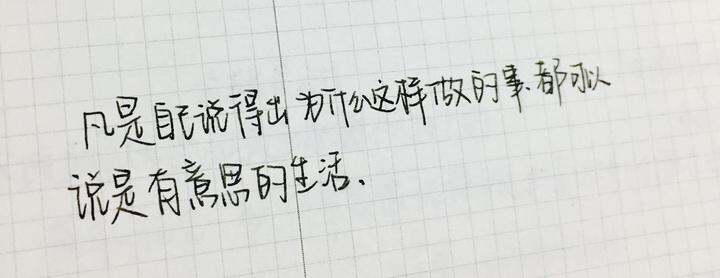 凡是自己说得出为什么这样做的事、都可以
说是有意思的生活、